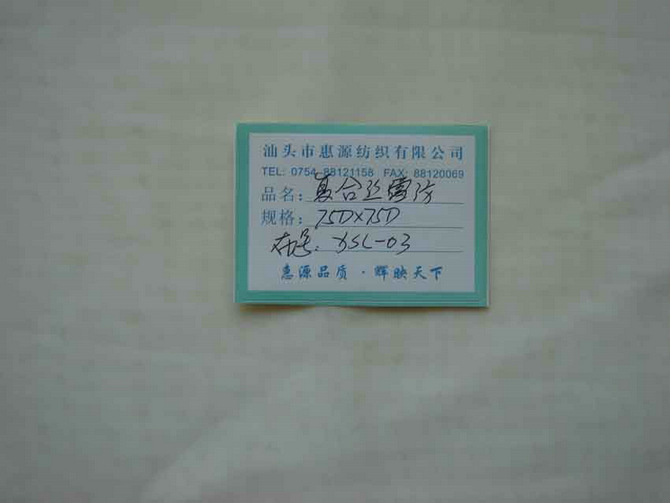 汕头市惠源纺织有限公司
TEL: 0754-88121158 FAX: 88120069
品名: 复合丝雪纺
规格: 75D×75D
布号: XSL-03
惠源品质·辉映天下